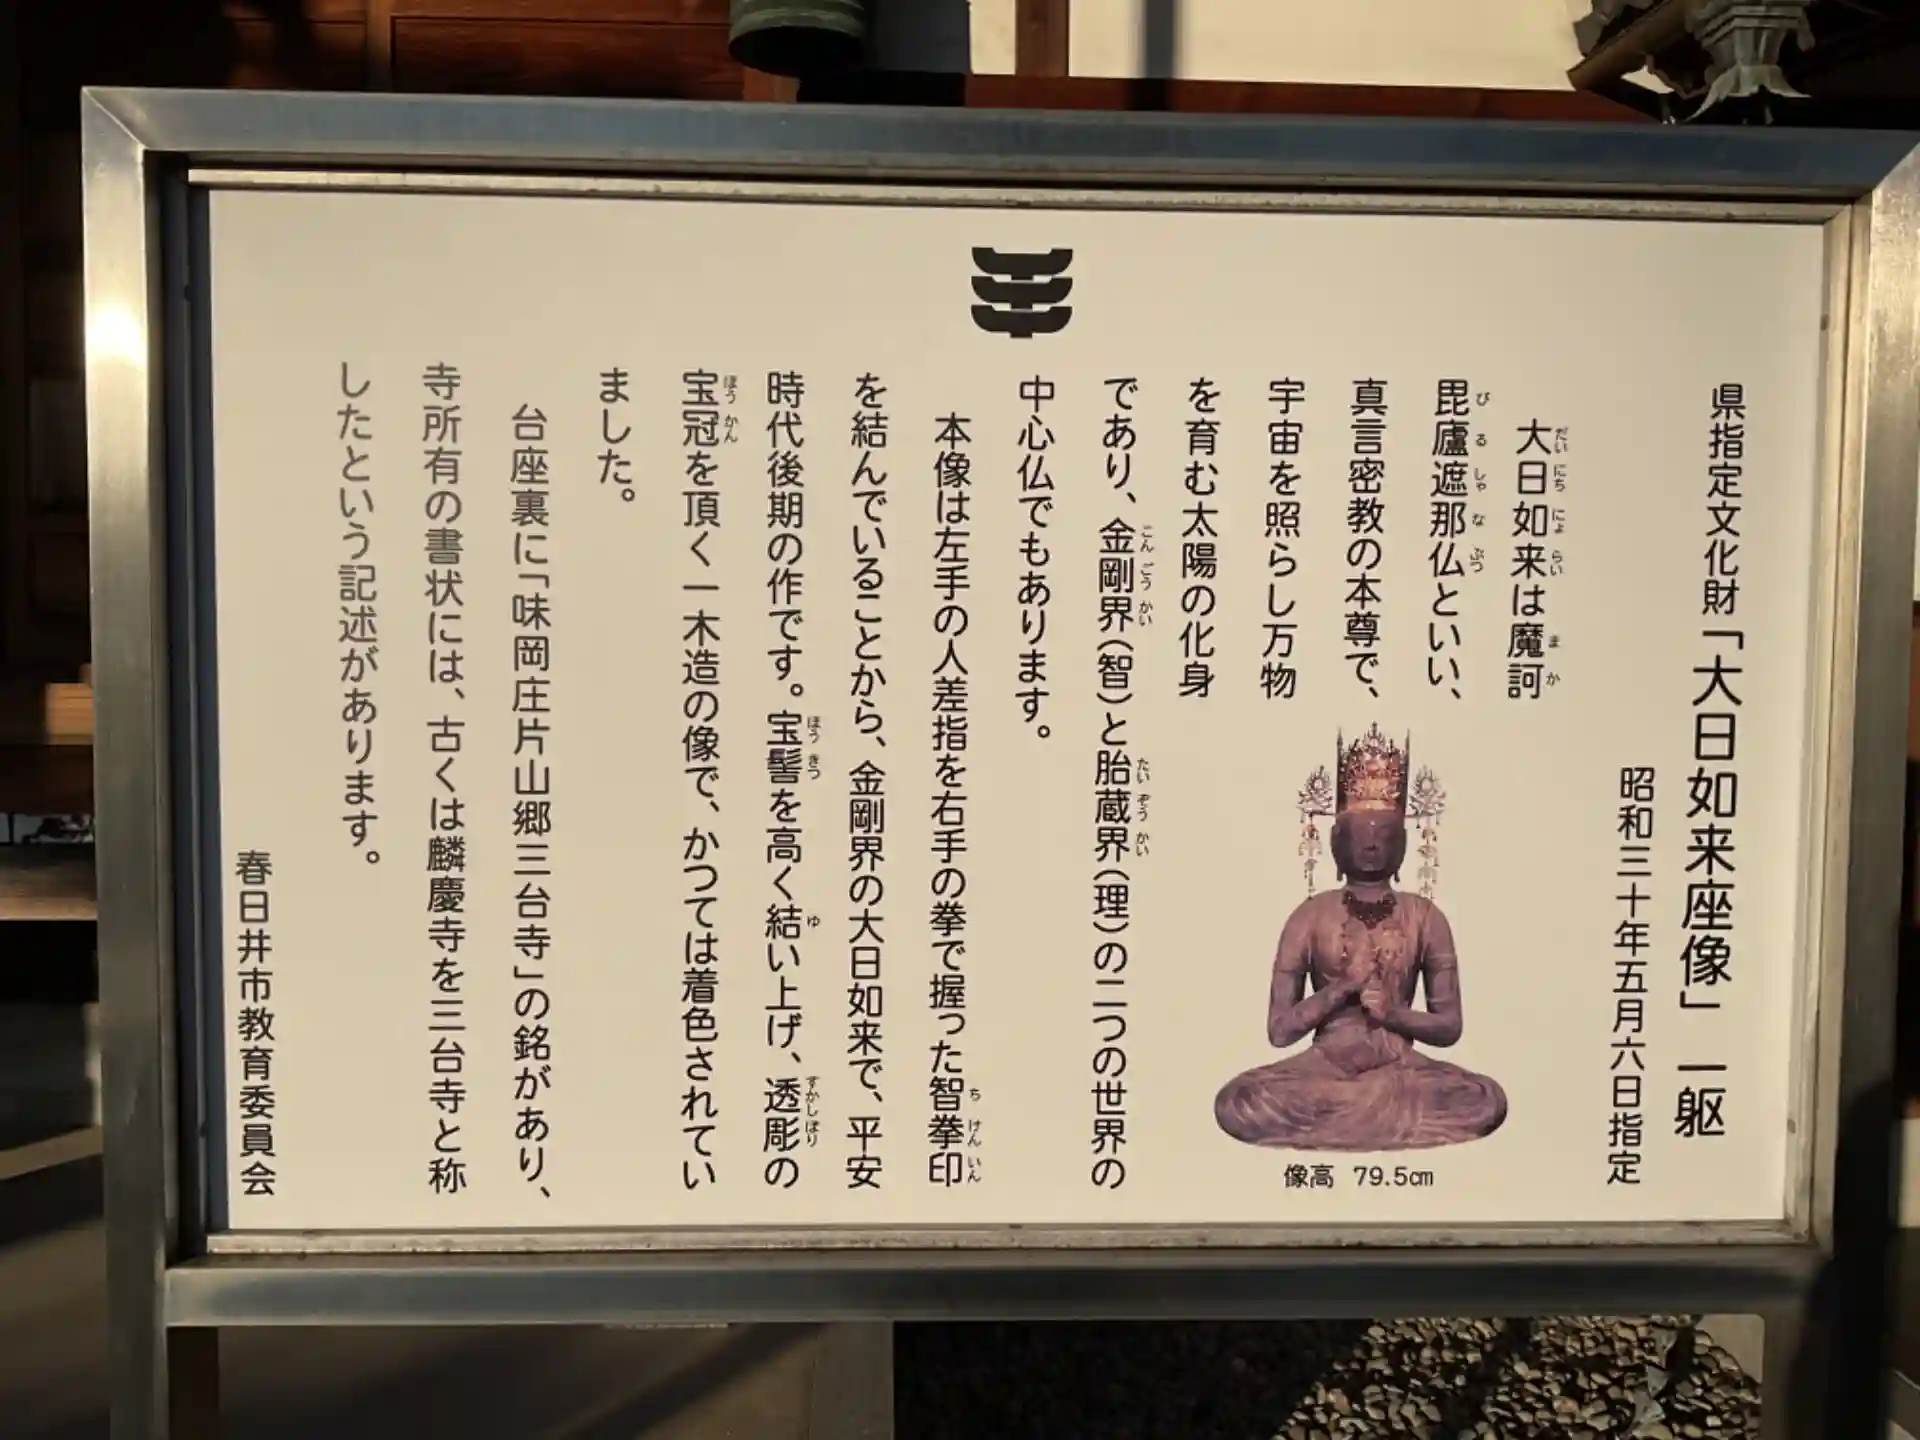 県指定文化財「大日如来座像」 一躯
昭和三十年五月六日指定
大日如来は魔訶
毘廬遮那仏といい、
真言密教の本尊で、
宇宙を照らし万物
を育む太陽の化身
であり、金剛界(智)と胎蔵界(理)の二つの世界の
中心仏でもあります。
本像は左手の人差指を右手の拳で握った智拳印
を結んでいることから、金剛界の大日如来で、平安
時代後期の作です。宝髻を高く結い上げ、透彫の
宝冠を頂く一木造の像で、かつては着色されてい
ました。
台座裏に「味岡庄片山郷三台寺」の銘があり、
寺所有の書状には、古くは麟慶寺を三台寺と称
したという記述があります。
春日井市教育委員会
像高 79.5㎝